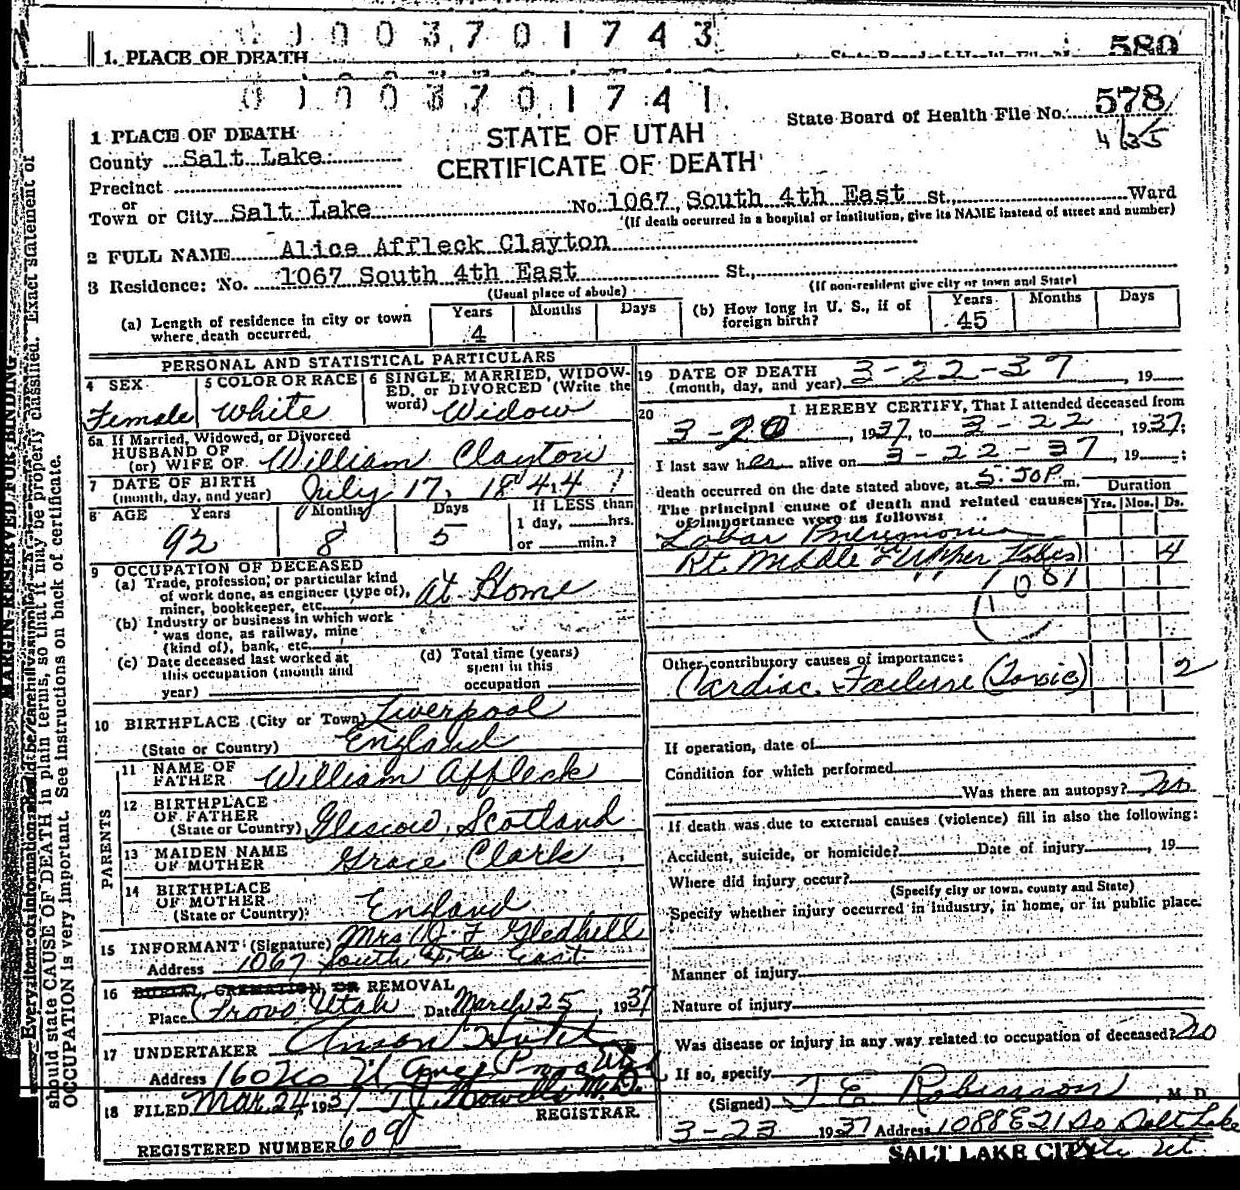 0 1 0 0 3 7 0 1 7 4 3
1. PLACE OF DEATH
State Board of Health File No. 580
0 1 0 0 3 7 0 1 7 4 1
State Board of Health File No. 578
4/35
STATE OF UTAH
CERTIFICATE OF DEATH
1 PLACE OF DEATH
County Salt Lake
Precinct
or
Town or City Salt Lake No. 1067 South 4th East St., Ward
(If death occurred in a hospital or institution, give its NAME instead of street and number)
2 FULL NAME Alice Affleck Clayton
3 Residence: No. 1067 South 4th East St.,
(Usual place of abode) (If non-resident give city or town and State)
(a) Length of residence in city or town where death occurred. Years 4 Months Days
(b) How long in U. S., if of foreign birth? Years 45 Months Days
PERSONAL AND STATISTICAL PARTICULARS
4 SEX Female
5 COLOR OR RACE White
6 SINGLE, MARRIED, WIDOWED, or DIVORCED (Write the word) Widow
6a If Married, Widowed, or Divorced
HUSBAND OF
(or) WIFE OF William Clayton
7 DATE OF BIRTH
(month, day, and year) July 17, 1844
8 AGE Years 92 Months 8 Days 5
If LESS than
1 day, hrs.
or min.?
9 OCCUPATION OF DECEASED
(a) Trade, profession, or particular kind
of work done, as engineer (type of),
miner, bookkeeper, etc. At Home
(b) Industry or business in which work
was done, as railway, mine
(kind of), bank, etc.
(c) Date deceased last worked at
this occupation (month and
year)
(d) Total time (years)
spent in this
occupation
10 BIRTHPLACE (City or Town) Liverpool
(State or Country) England
PARENTS
11 NAME OF
FATHER William Affleck
12 BIRTHPLACE
OF FATHER
(State or Country) Glascow, Scotland
13 MAIDEN NAME
OF MOTHER Grace Clark
14 BIRTHPLACE
OF MOTHER
(State or Country) England
15 INFORMANT (Signature) Mrs J F Gledhill
Address 1067 South 4th East
16 BURIAL, CREMATION, OR REMOVAL
Place Provo Utah Date March 25, 1937
17 UNDERTAKER
Address
18 FILED Mar 24 1937
REGISTRAR.
REGISTERED NUMBER 609
19 DATE OF DEATH
(month, day, and year) 3-22-37, 19
20 I HEREBY CERTIFY, That I attended deceased from
3-20, 1937, to 3-22, 1937;
I last saw her alive on 3-22-37, 19 ;
death occurred on the date stated above, at 5:30P m.
Duration
The principal cause of death and related causes
of importance were as follows: Yrs. Mos. Ds.
Lobar Pneumonia
Rt. Middle & Upper Lobes 4
108
Other contributory causes of importance:
Cardiac Failure (Toxic) 2
If operation, date of
Condition for which performed
Was there an autopsy? no
If death was due to external causes (violence) fill in also the following:
Accident, suicide, or homicide? Date of injury , 19
Where did injury occur?
(Specify city or town, county and State)
Specify whether injury occurred in industry, in home, or in public place.
Manner of injury
Nature of injury
Was disease or injury in any way related to occupation of deceased? no
If so, specify
(Signed) J E Robinson, M. D.
3-23 1937 Address 1088 E 21 So Salt Lake
City Ut
SALT LAKE CITY
MARGIN RESERVED FOR BINDING
Every item of information should be carefully supplied. Exact statement of
should state CAUSE OF DEATH in plain terms, so that it may be properly classified.
OCCUPATION is very important. See instructions on back of certificate.